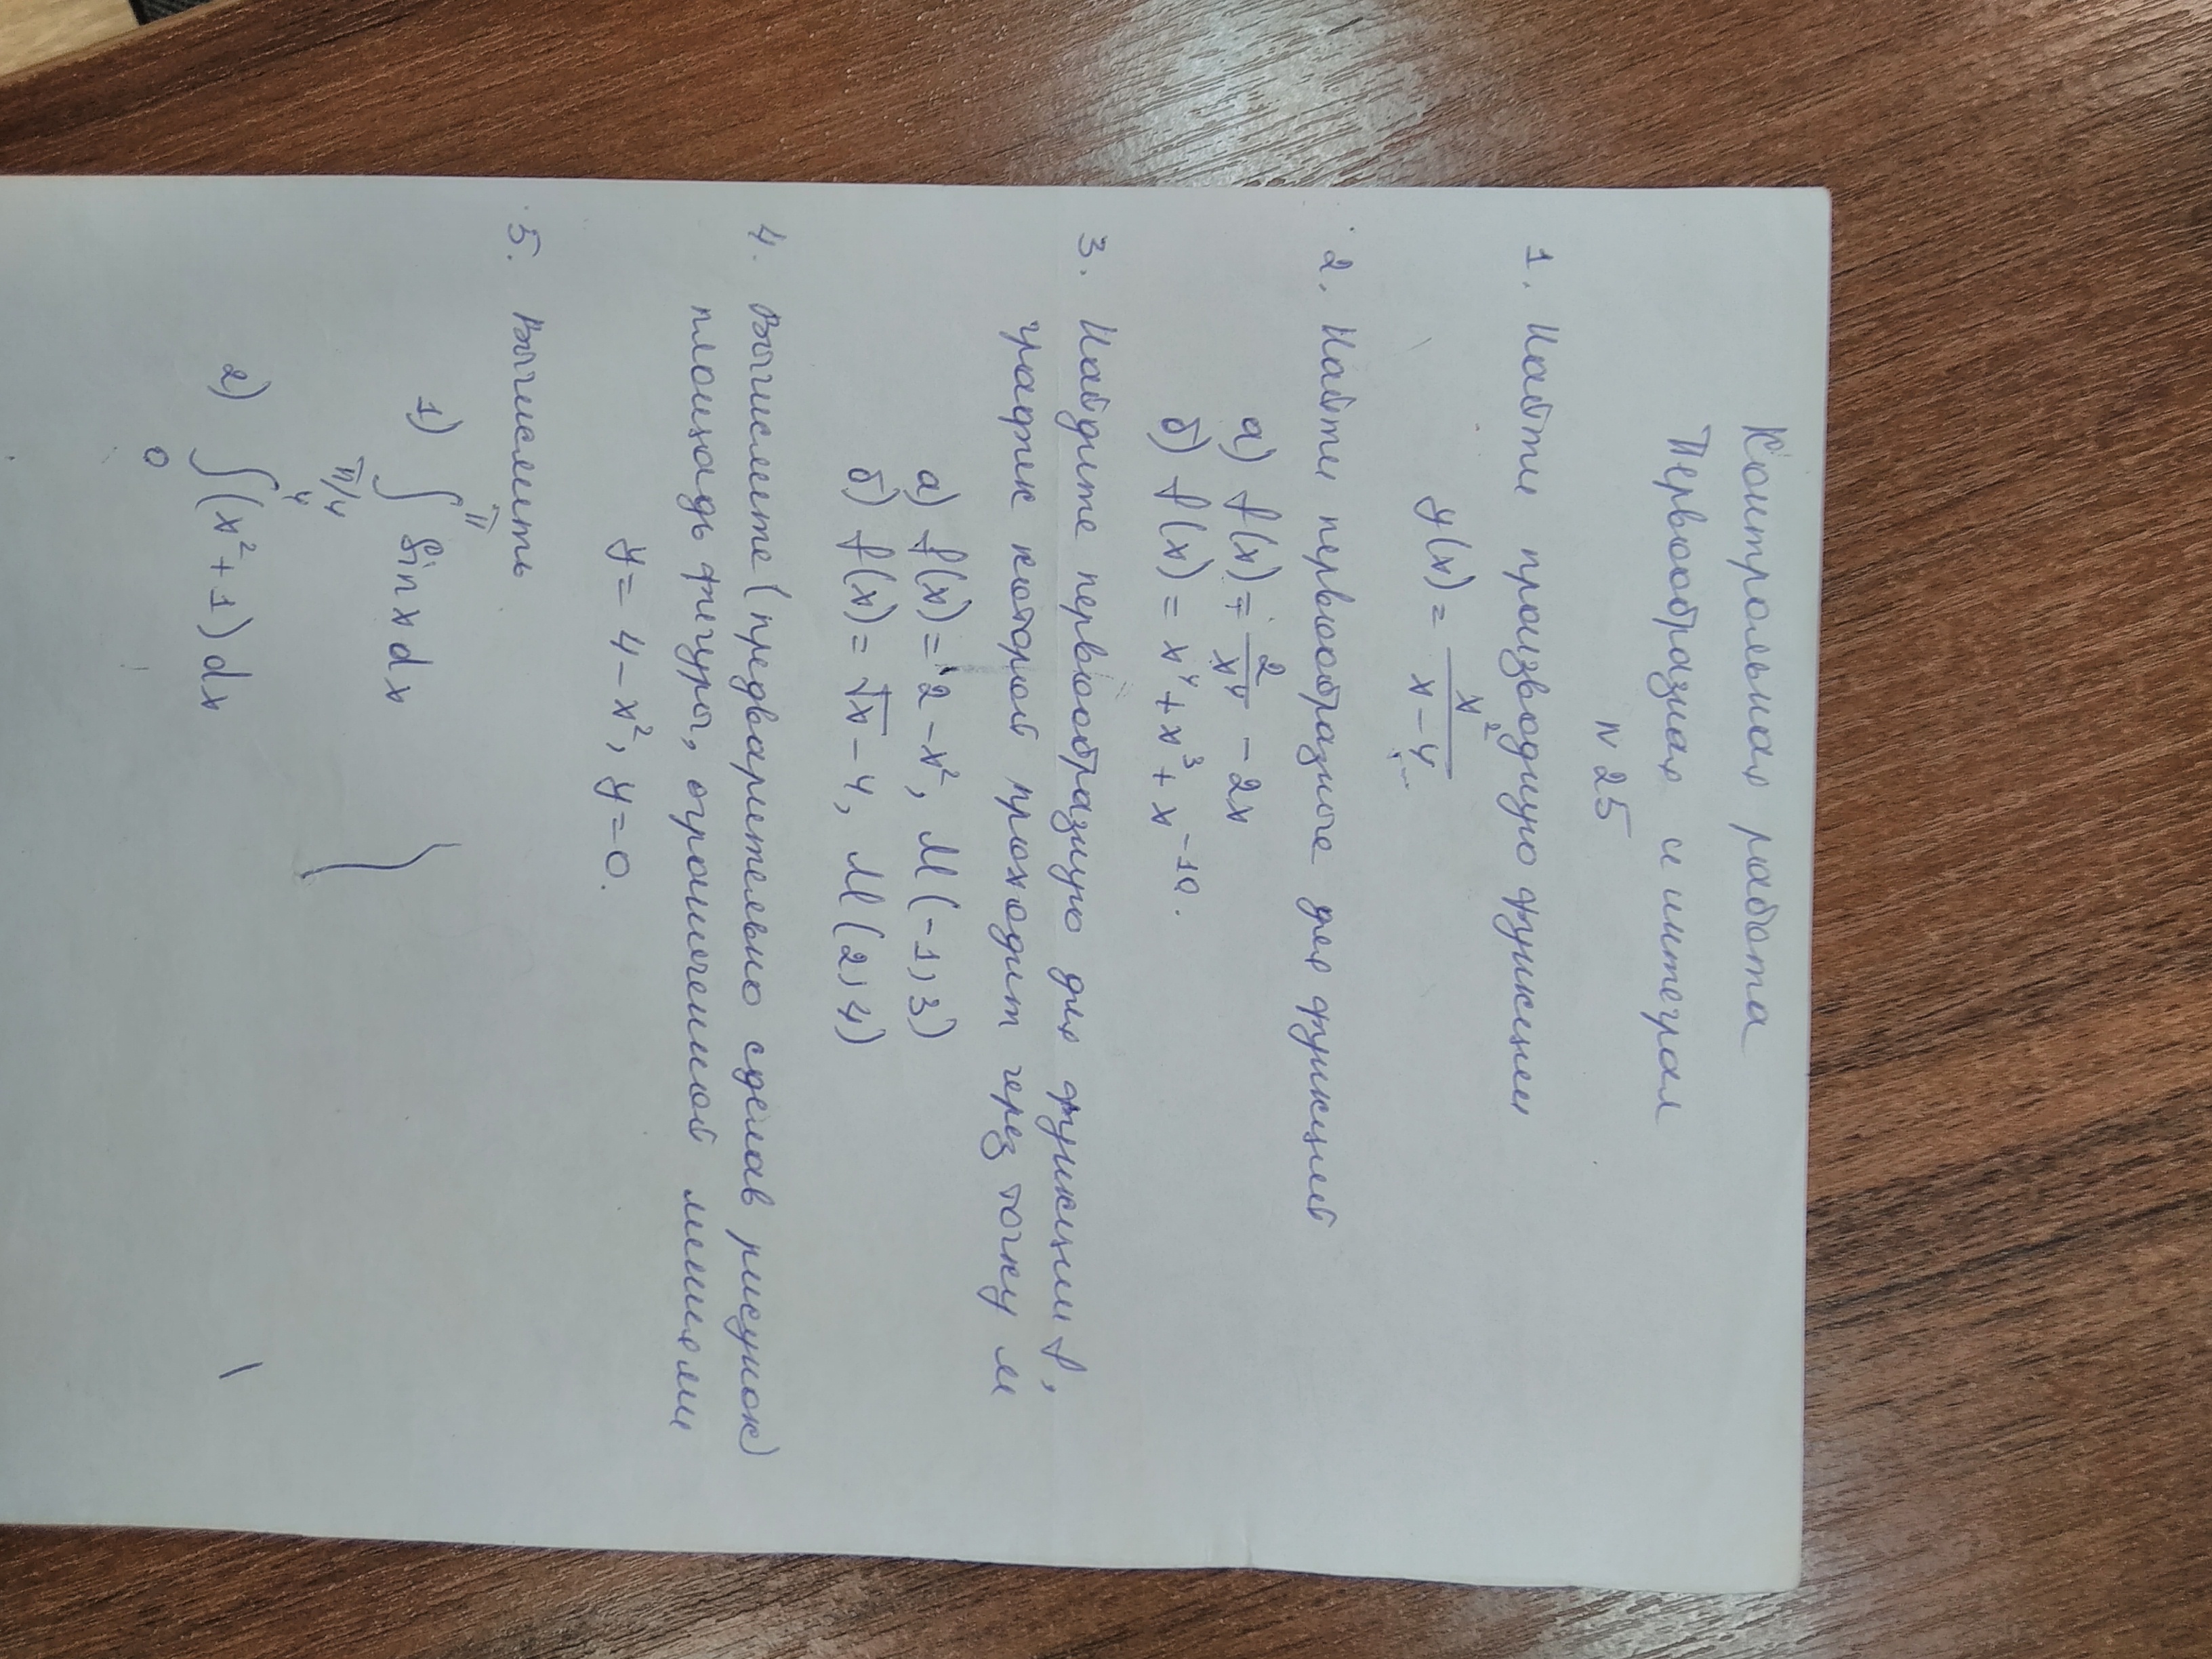 Контрольная работа
Первообразная и интеграл
N 25
1. Найти производную функции
y(x) = x²/(x-4)
2. Найти первообразные для функций
а) f(x) = 2/x⁴ - 2x
б) f(x) = x⁴ + x³ + x⁻¹⁰.
3. Найдите первообразную для функции f,
график которой проходит через точку М
а) f(x) = 2 - x², М(-1,3)
б) f(x) = √x - 4, М(2,4)
4. Вычислите (предварительно сделав рисунок)
площадь фигуры, ограниченной линиями
y = 4 - x², y = 0.
5. Вычислить
1) ∫_{π/4}^{π} sin x dx
2) ∫_{0}^{4} (x² + 1) dx